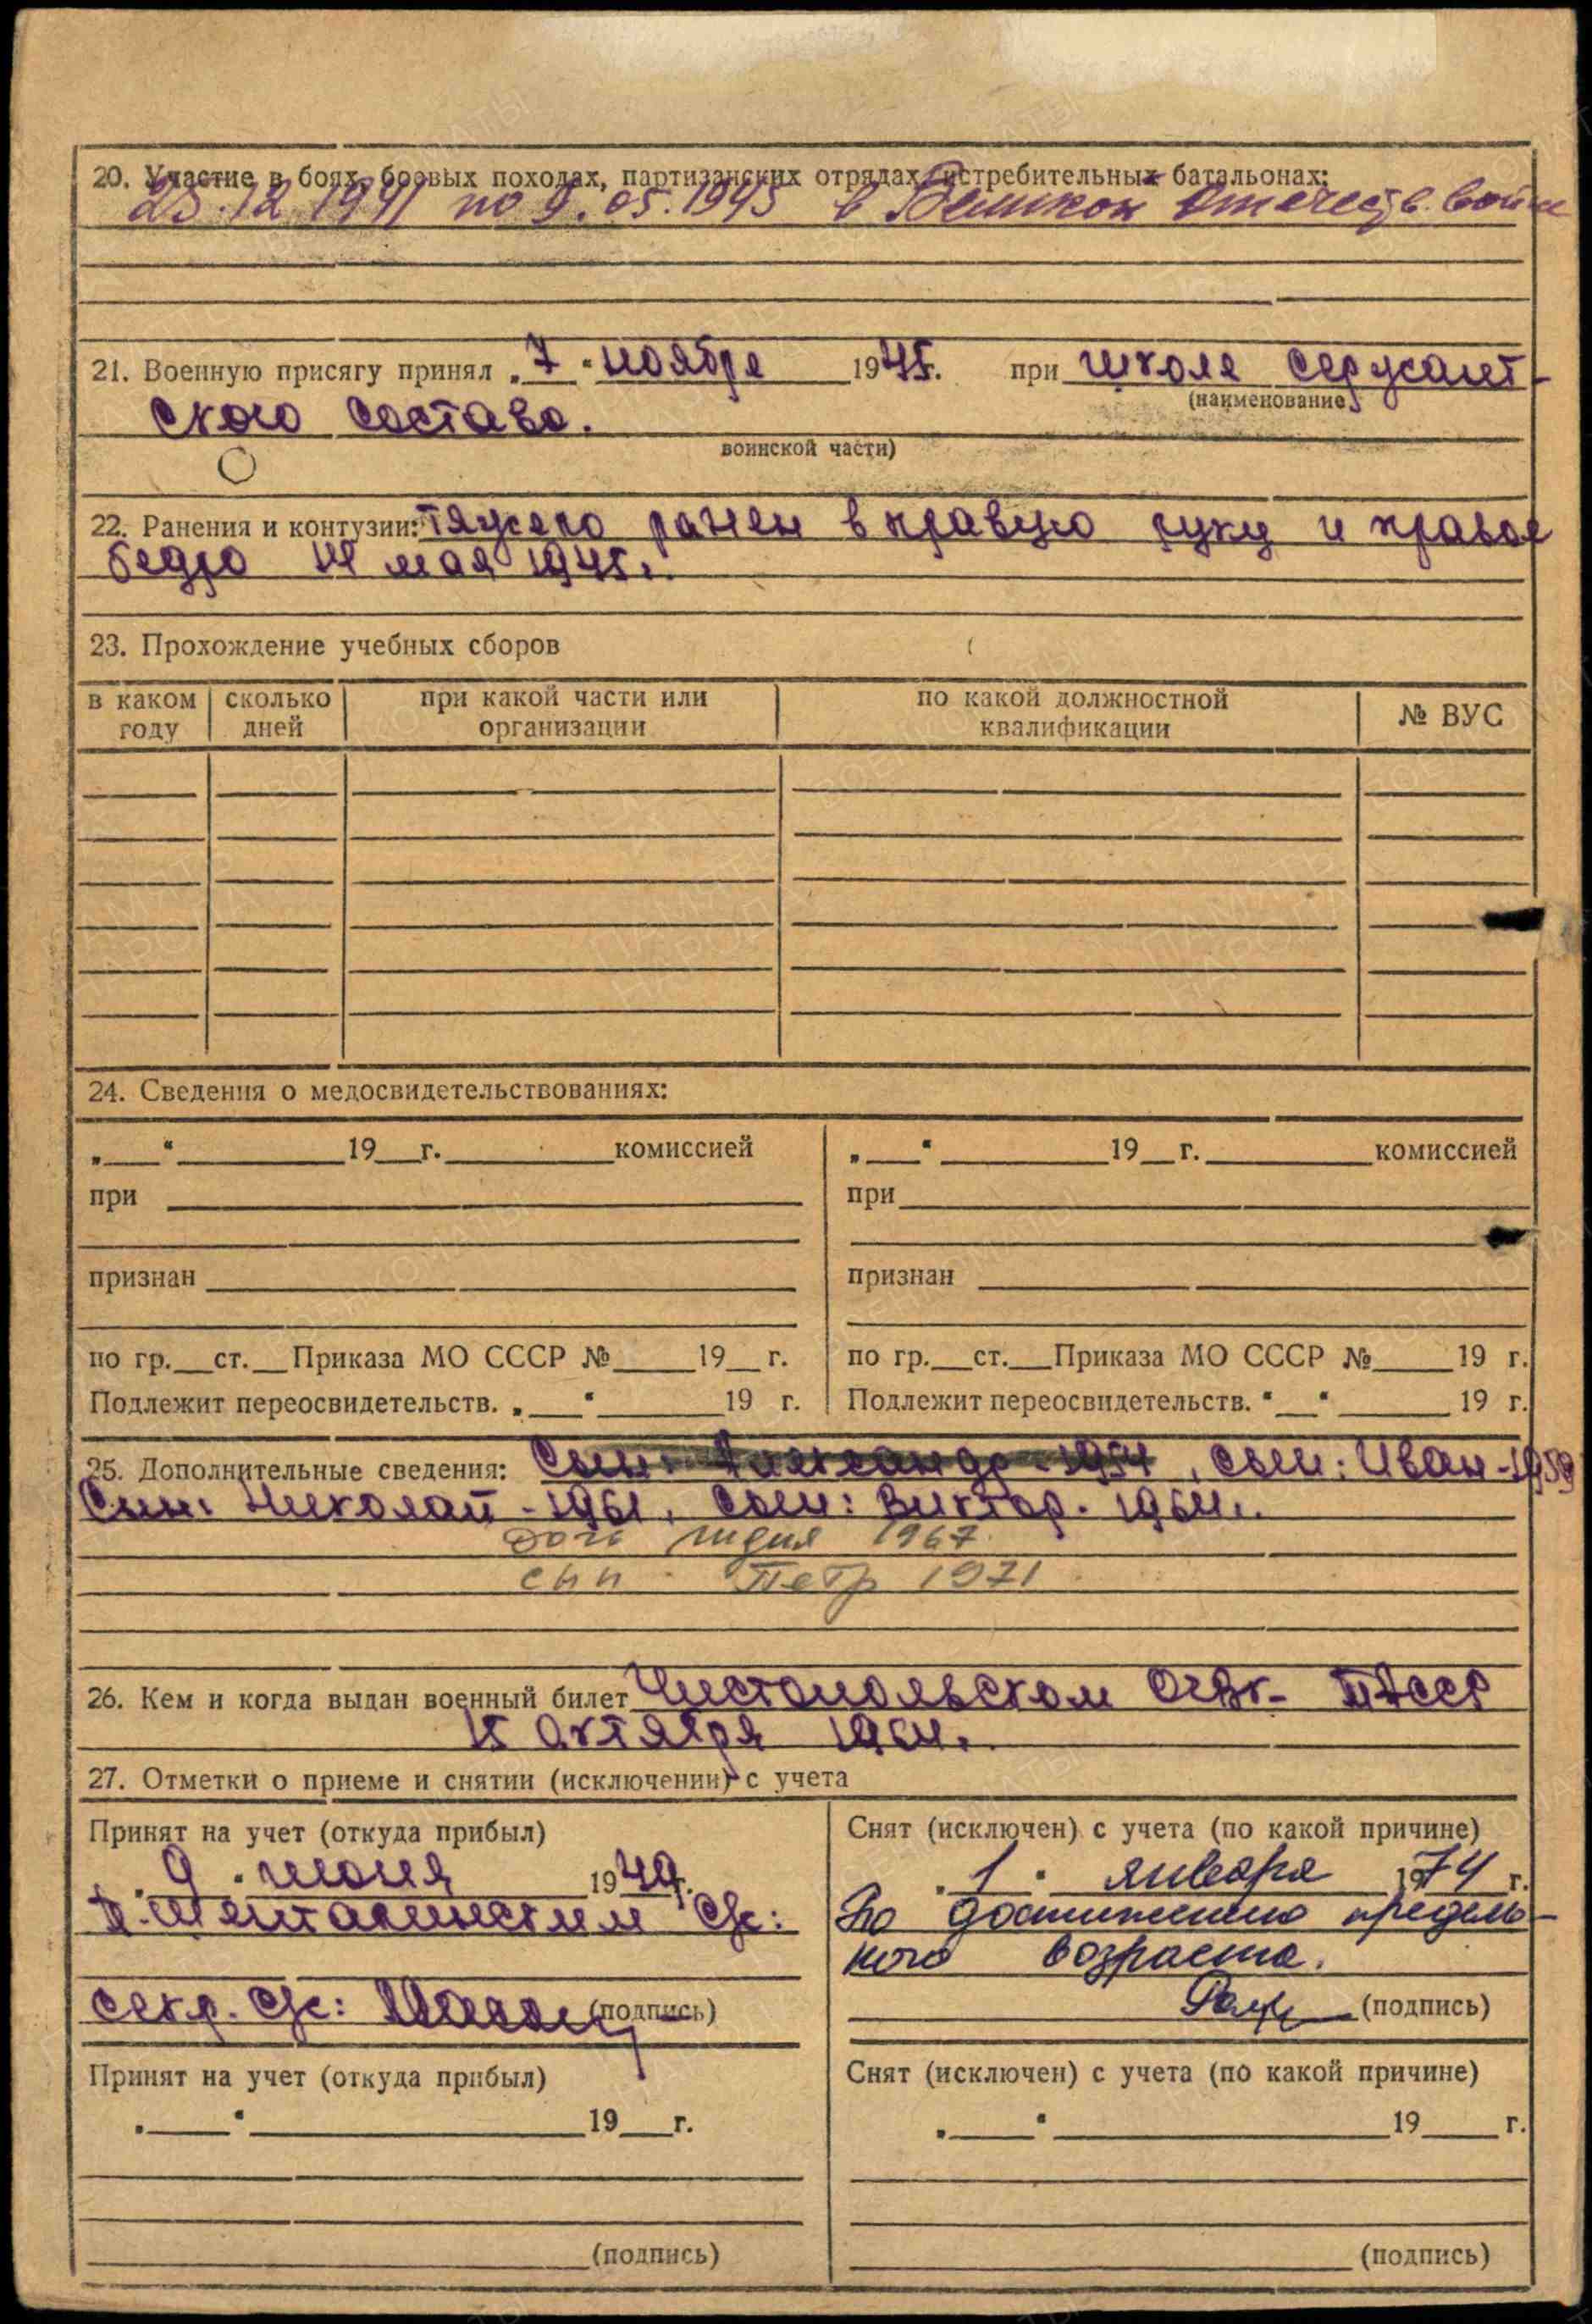 20. Участие в боях, боевых походах, партизанских отрядах, истребительных батальонах:
25.12.1941 по 9.05.1945 в Великой Отечеств. войне
21. Военную присягу принял „ 7 “ ноября 1945г. при школе сержант-
(наименование
ского состава.
воинской части)
22. Ранения и контузии: тяжело ранен в правую руку и правое
бедро 14 мая 1945г.
23. Прохождение учебных сборов
в каком году | сколько дней | при какой части или организации | по какой должностной квалификации | № ВУС
24. Сведения о медосвидетельствованиях:
„___“ ______ 19__г. ______ комиссией
при
признан
по гр.__ст.__Приказа МО СССР №____19__г.
Подлежит переосвидетельств. „___“______19 г.
„___“ ______ 19__г. ______ комиссией
при
признан
по гр.__ст.__Приказа МО СССР №____19 г.
Подлежит переосвидетельств. “__“______19 г.
25. Дополнительные сведения: Сын: Александр - 1954, сын: Иван - 1959
Сын: Николай - 1961, сын: Виктор - 1964г.
дочь Лидия 1967
сын Петр 1971
26. Кем и когда выдан военный билет Чистопольском ОГВК ТАССР
15 октября 1964г.
27. Отметки о приеме и снятии (исключении) с учета
Принят на учет (откуда прибыл)
„ 9 “ июня 1949г.
с/с:
секр. с/с: (подпись)
Снят (исключен) с учета (по какой причине)
„ 1 “ января 1974 г.
По достижению предель-
ного возраста.
(подпись)
Принят на учет (откуда прибыл)
„___“ ______ 19__г.
(подпись)
Снят (исключен) с учета (по какой причине)
„___“ ______ 19___ г.
(подпись)